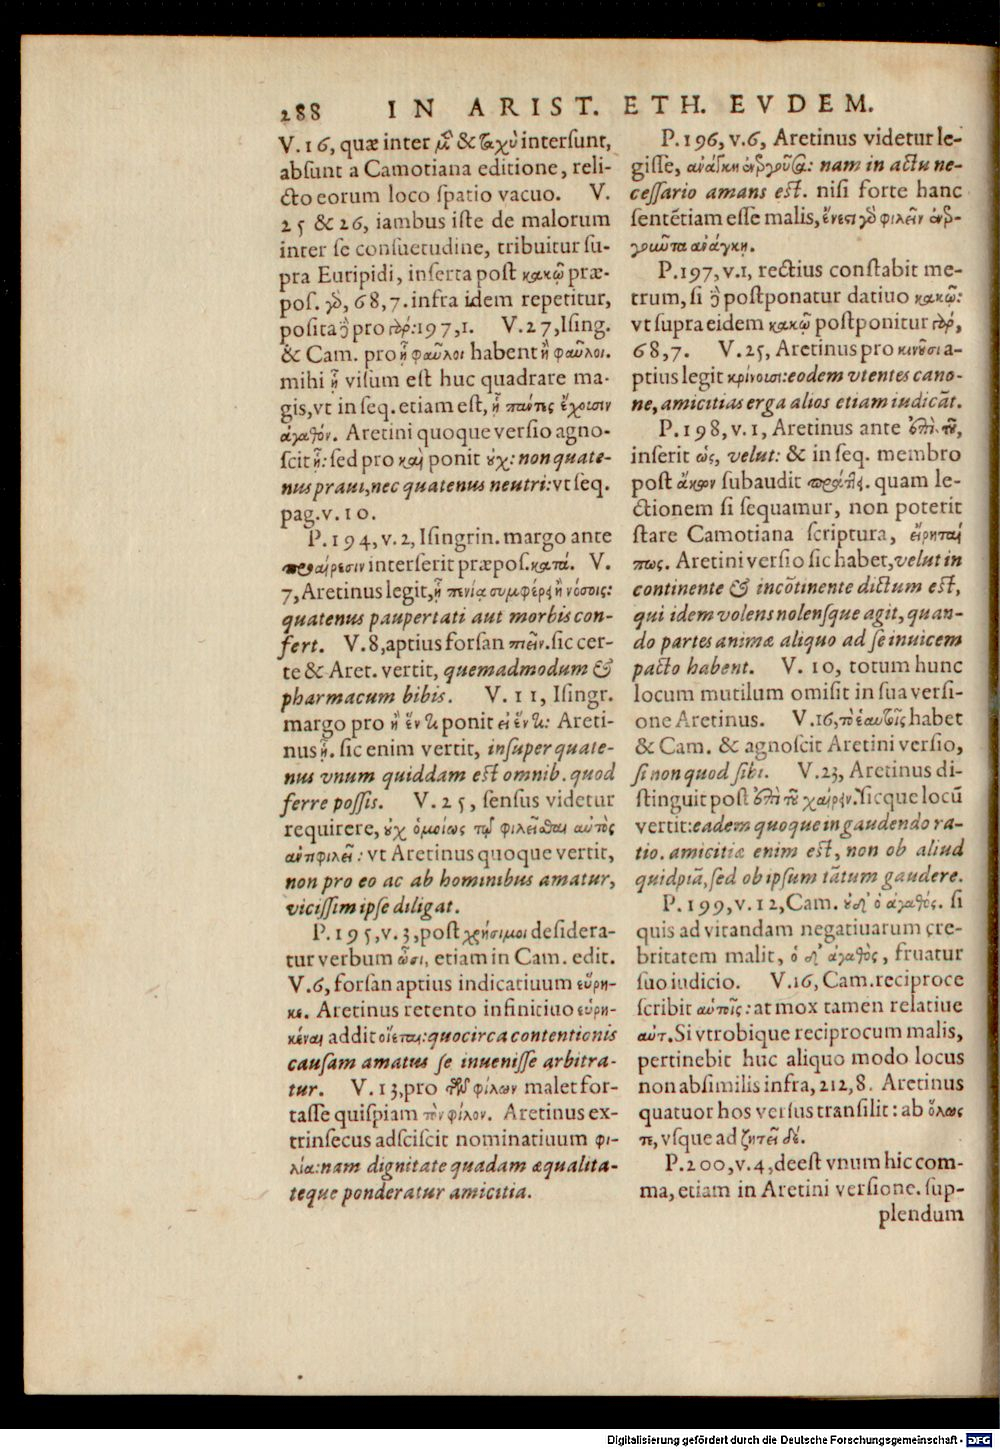 288 IN ARIST. ETH. EVDEM.
V. 16, quæ inter μ̂ & ταχὺ intersunt,
absunt a Camotiana editione, reli-
cto eorum loco spatio vacuo. V.
25 & 26, iambus iste de malorum
inter se consuetudine, tribuitur su-
pra Euripidi, inserta post κακῷ præ-
pos. γὸ, 68, 7. infra idem repetitur,
posita pro γάρ: 197, 1. V. 27, Ising.
& Cam. pro ᾗ φαῦλοι habent ἢ φαῦλοι.
mihi ᾗ visum est huc quadrare ma-
gis, vt in seq. etiam est, ᾗ πάντες ἔχουσιν
ἀγαθόν. Aretini quoque versio agno-
scit ᾗ: sed pro καὶ ponit οὐχ: non quate-
nus praui, nec quatenus neutri: vt seq.
pag. v. 10.
P. 194, v. 2, Isingrin. margo ante
προαίρεσιν interserit præpos. κατά. V.
7, Aretinus legit, ᾗ πενίᾳ συμφέρει ἢ νόσοις:
quatenus paupertati aut morbis con-
fert. V. 8, aptius forsan πιεῖν. sic cer-
te & Aret. vertit, quemadmodum &
pharmacum bibis. V. 11, Isingr.
margo pro ἢ ἕν τι ponit εἰ ἕν τι: Areti-
nus ᾗ. sic enim vertit, insuper quate-
nus vnum quiddam est omnib. quod
ferre possis. V. 25, sensus videtur
requirere, οὐχ ὁμοίως τῷ φιλεῖσθαι αὐτὸς
ἀντιφιλεῖ: vt Aretinus quoque vertit,
non pro eo ac ab hominibus amatur,
vicissim ipse diligat.
P. 195, v. 3, post χρήσιμοι desidera-
tur verbum ὦσι, etiam in Cam. edit.
V. 6, forsan aptius indicatiuum εὕρη-
κε. Aretinus retento infinitiuo εὑρη-
κέναι addit οἴεται: quocirca contentionis
causam amatus se inuenisse arbitra-
tur. V. 13, pro τῶν φίλων malet for-
tasse quispiam τὸν φίλον. Aretinus ex-
trinsecus adsciscit nominatiuum φι-
λία: nam dignitate quadam æqualita-
teque ponderatur amicitia.
P. 196, v. 6, Aretinus videtur le-
gisse, ἀνάγκη ἐνεργοῦντα: nam in actu ne-
cessario amans est. nisi forte hanc
sentẽtiam esse malis, ἔνεστι γὸ φιλεῖν ἐνερ-
γοῦντα ἀνάγκη.
P. 197, v. 1, rectius constabit me-
trum, si postponatur datiuo κακῷ:
vt supra eidem κακῷ postponitur γάρ,
68, 7. V. 25, Aretinus pro κινοῦσι a-
ptius legit κρίνουσι: eodem vtentes cano-
ne, amicitias erga alios etiam iudicãt.
P. 198, v. 1, Aretinus ante ἐπὶ τοῦ,
inserit ὡς, velut: & in seq. membro
post ἄκων subaudit πράττει. quam le-
ctionem si sequamur, non poterit
stare Camotiana scriptura, εἴρηταί
πως. Aretini versio sic habet, velut in
continente & incõtinente dictum est,
qui idem volens nolensque agit, quan-
do partes animæ aliquo ad se inuicem
pacto habent. V. 10, totum hunc
locum mutilum omisit in sua versi-
one Aretinus. V. 16, τὸ ἑαυτοῖς habet
& Cam. & agnoscit Aretini versio,
si non quod sibi. V. 23, Aretinus di-
stinguit post ἐπὶ τοῦ χαίρειν. sicque locũ
vertit: eadem quoque in gaudendo ra-
tio. amicitiæ enim est, non ob aliud
quidpiã, sed ob ipsum tãtum gaudere.
P. 199, v. 12, Cam. οὐδ' ὁ ἀγαθός. si
quis ad vitandam negatiuarum cre-
britatem malit, ὁ δ' ἀγαθὸς, fruatur
suo iudicio. V. 16, Cam. reciproce
scribit αὑτοῖς: at mox tamen relatiue
αὐτ. Si vtrobique reciprocum malis,
pertinebit huc aliquo modo locus
non absimilis infra, 212, 8. Aretinus
quatuor hos versus transilit: ab ὅλως
τε, vsque ad ζητεῖ δέ.
P. 200, v. 4, deest vnum hic com-
ma, etiam in Aretini versione. sup-
plendum
Digitalisierung gefördert durch die Deutsche Forschungsgemeinschaft - DFG